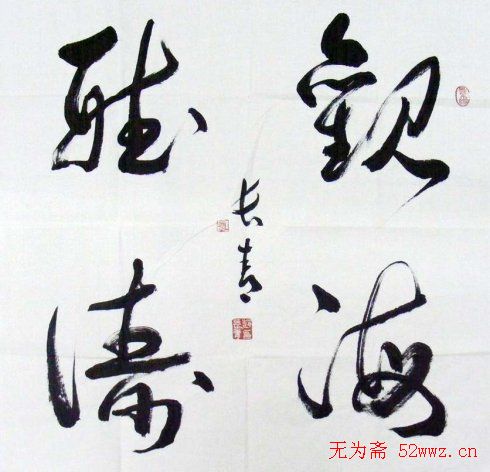 觀海
聴濤
长青
无为斋 52wwz.cn